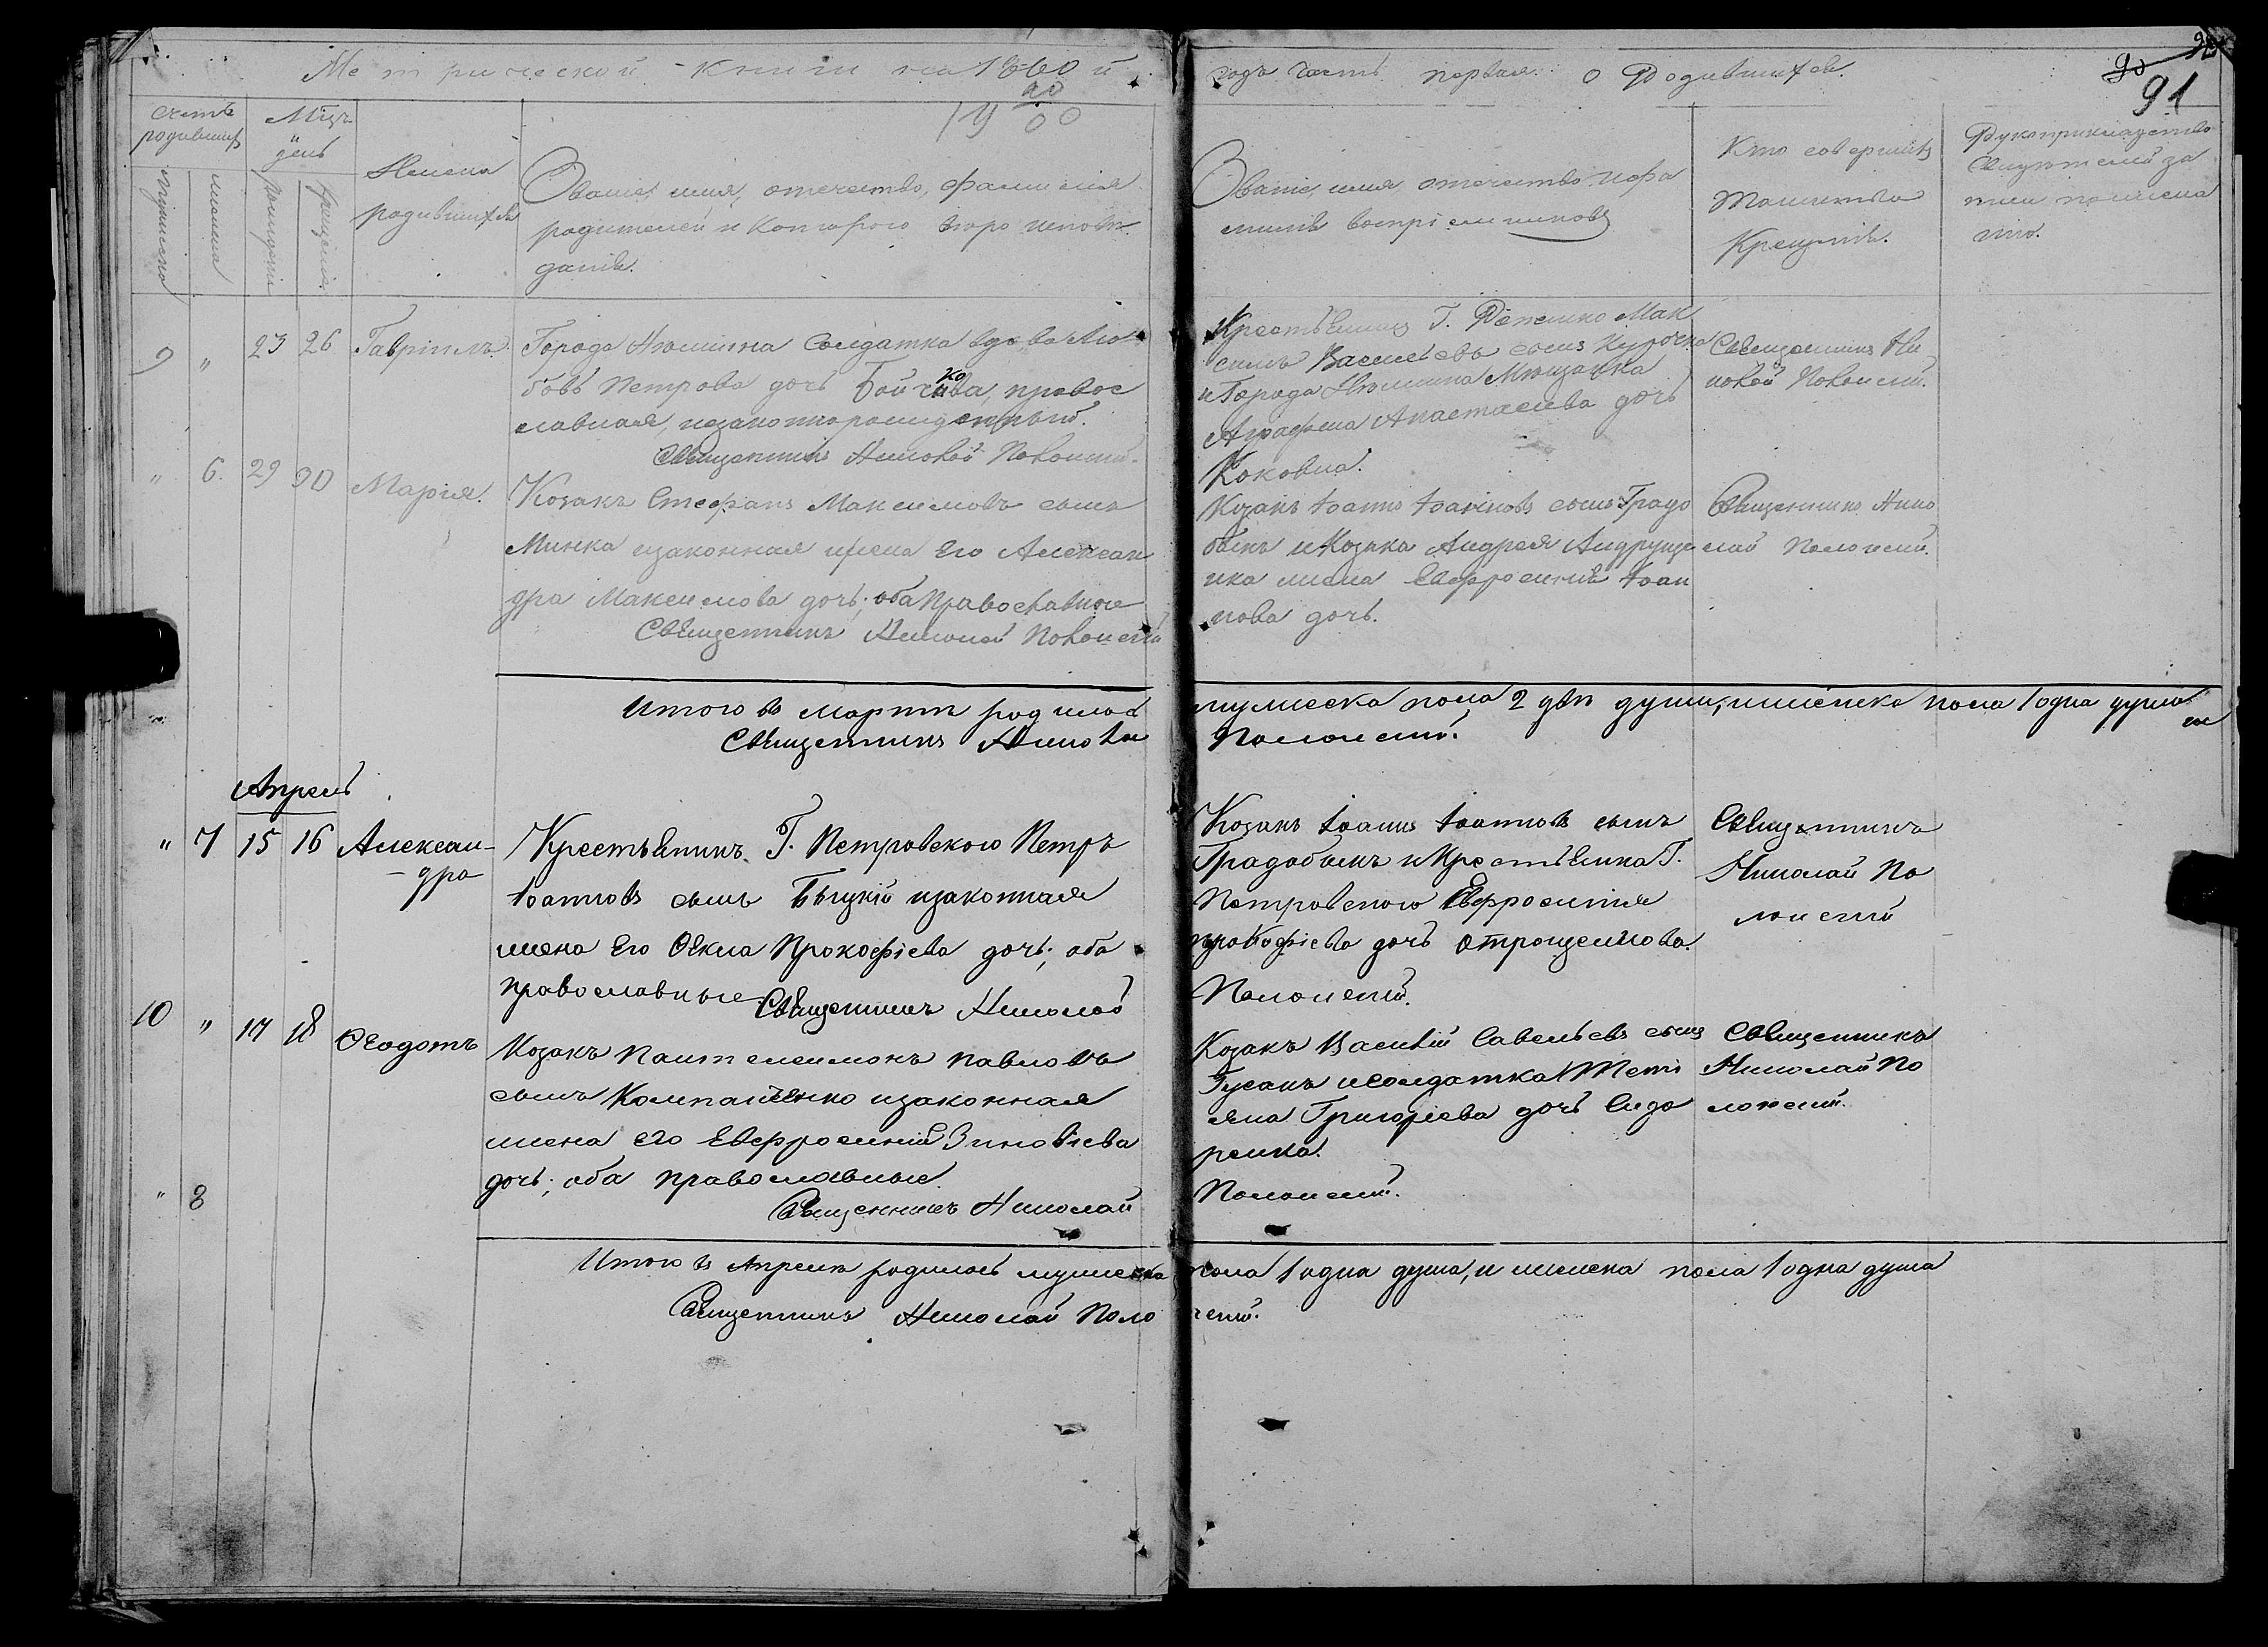 Метрической книги на 1860 й
годъ часть первая о Родившихся.
91
Счетъ родившихся
Мѣцъ и день
Имена родившихся
Званіе, имя, отечество, фамилія
родителей и которого вѣроисповѣ
данія.
Званіе, имя отечество и фа
милія воспріемниковъ
Кто совершилъ
Таинство
Крещенія.
Рукоприкладство
свидѣтелей за
писи по желан
ію.
мужеска
женска
рожденія
крещенія
9 " 23 26 Гавріилъ.
Города Нѣжина Солдатка вдова Лю
бовь Петрова дочь Бойчкова, правос
лавная, незаконнорожденный.
Священникъ Николай Полонскій.
Крестьянинъ Г. Максимъ Васильевъ сынъ Курочка
и Города Нѣжина Мѣщанка
Аграфена Анастасіева дочь
Коковна.
Священникъ Ни
колай Полонскій.
" 6. 29 30 Марія.
Козакъ Стефанъ Максимовъ сынъ
Минка и законная жена Его Алексан
дра Максимова дочь; оба православные
Священникъ Николай Полонскій
Козакъ Іоаннъ Іоанновъ сынъ Градо
быкъ и Козака Андрея Андруще
нка жена Евфросинія Іоан
нова дочь.
Священникъ Нико
лай Полонскій.
Итого въ Мартѣ родилось мужеска пола 2 двѣ души, и женска пола 1 одна душа
Священникъ Николай Полонскій.
Апрель
" 7 15 16 Алексан-
-дра
Крестьянинъ Г. Петровского Петръ
Іоанновъ сынъ Быцкій и законная
жена Его Ѳекла Прокофіева дочь; оба
православные. Священникъ Николай Полонскій.
Козакъ Іоаннъ Іоанновъ сынъ
Градобыкъ и Крестьянка Г.
Петровского Евфросинія
Прокофіева дочь Отрощенкова.
Священникъ
Николай По
лонскій
10 " 17 18 Ѳеодотъ
Козакъ Пантелеимонъ Павловъ
сынъ Компаніенко и законная
жена его Евфросинія Зиновіева
дочь; оба православные.
Священникъ Николай Полонскій.
Козакъ Василій Савельевъ сынъ
Гусакъ и солдатка Тати
яна Григоріева дочь Сидо
ренка.
Священникъ
Николай По
лонскій.
" 8
Итого въ Апрелѣ родилось мужеска пола 1 одна душа, и женска пола 1 одна душа
Священникъ Николай Полонскій.